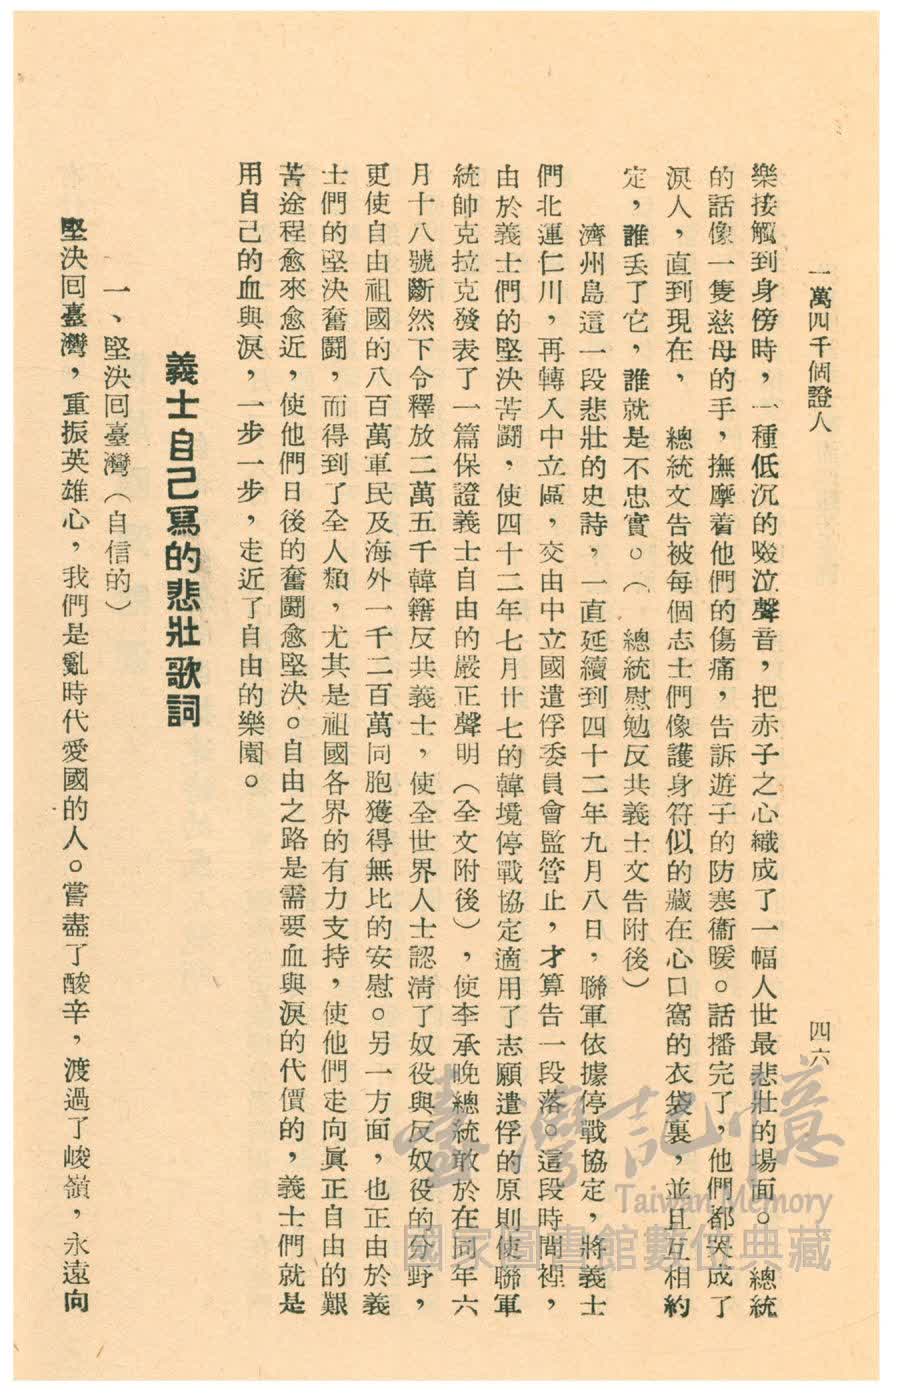 一萬四千個證人
四六
樂接觸到身傍時，一種低沉的啜泣聲音，把赤子之心織成了一幅人世最悲壯的場面。總統
的話像一隻慈母的手，撫摩着他們的傷痛，告訴遊子的防寒衞暖。話播完了，他們都哭成了
淚人，直到現在，　總統文告被每個志士們像護身符似的藏在心口窩的衣袋裏，並且互相約
定，誰丢了它，誰就是不忠實。（　總統慰勉反共義士文告附後）
濟州島這一段悲壯的史詩，一直延續到四十二年九月八日，聯軍依據停戰協定，將義士
們北運仁川，再轉入中立區，交由中立國遣俘委員會監管止，才算告一段落。這段時間裡，
由於義士們的堅決苦鬪，使四十二年七月廿七的韓境停戰協定適用了志願遣俘的原則使聯軍
統帥克拉克發表了一篇保證義士自由的嚴正聲明（全文附後），使李承晚總統敢於在同年六
月十八號斷然下令釋放二萬五千韓籍反共義士，使全世界人士認清了奴役與反奴役的分野，
更使自由祖國的八百萬軍民及海外一千二百萬同胞獲得無比的安慰。另一方面，也正由於義
士們的堅決奮鬪，而得到了全人類，尤其是祖國各界的有力支持，使他們走向眞正自由的艱
苦途程愈來愈近，使他們日後的奮鬪愈堅決。自由之路是需要血與淚的代價的，義士們就是
用自己的血與淚，一步一步，走近了自由的樂園。
義士自己寫的悲壯歌詞
一、堅決回臺灣（自信的）
堅決回臺灣，重振英雄心，我們是亂時代愛國的人。嘗盡了酸辛，渡過了峻嶺，永遠向
臺灣記憶
Taiwan Memory
國家圖書館數位典藏